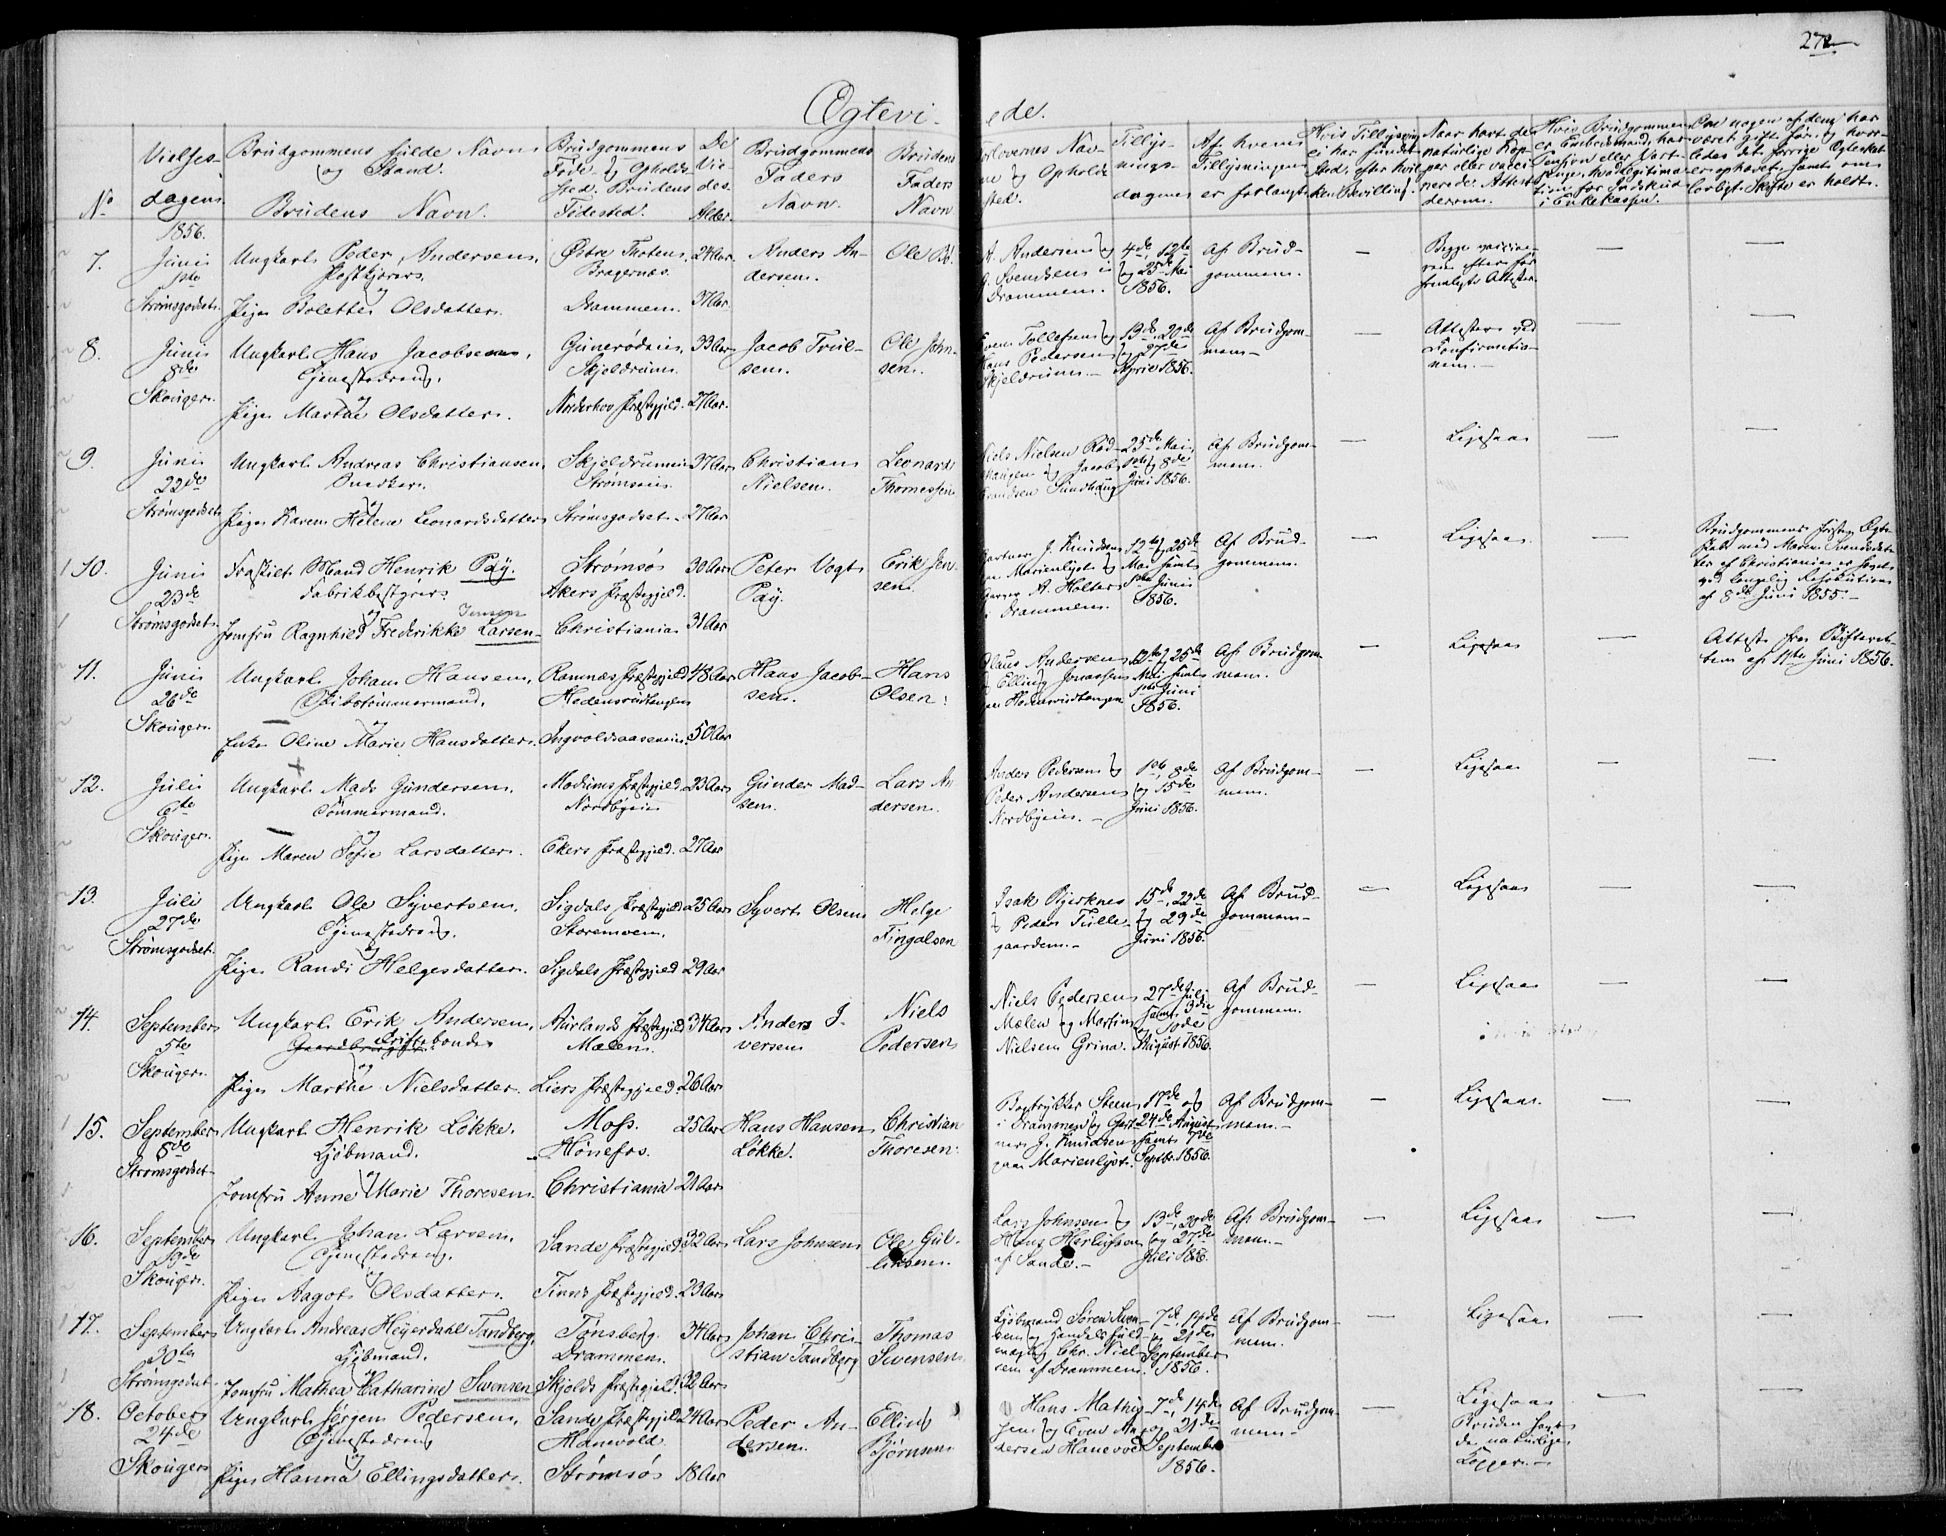 272
Ægtevi-
ede.
No
Vielses-
dagen.
Brudgommens fulde Navn
og Stand.
Brudens Navn.
Brudgommens
Føde og Opholds-
sted. Brudens
Fødested.
De
Vie-
des
Alder.
Brudgommens
Faders
Navn.
Brudens
Faders
Navn
Forlovernes Nav-
ne og Opholds
sted.
Tillys-
nings-
dagene
Af hvem
Tillysningen
er forlangt
1856.
7.
Juni
1ste
Strømsgodset.
Ungkarl Peder Andersen,
Postkjører.
og
Pige Bolette Olsdatter.
Østre Thoten,
Bragernæs.
Drammen.
24 Aar.
37 Aar.
Anders An-
dersen.
Ole
A. Andersen og
Svendsen i
Drammen.
4de, 12te
og 25de Mai
1856.
Af Brud-
gommen.
—
Attester.
—
—
8.
Juni
8de
Skouger.
Ungkarl Hans Jacobsen,
Tjenestedreng.
og
Pige Marthe Olsdatter.
Skjeldrum.
Norderhov Præstegjeld.
33 Aar
27 Aar.
Jacob Truls-
sen.
Ole John-
sen.
Even Tollefsen og
Hans Pedersen
Skjeldrum.—
13de, 20de
og 27de
April 1856.
Af Brudgom-
men—
—
Attester ved
Confirmatio-
nen.—
—
—
9.
Juni
22de
Strømsgodset
Ungkarl Andreas Christiansen,
Snedker.
og
Pige Karen Helene Leonardsdatter
Skjeldrum
Strømsgodset.
37 Aar
27 Aar
Christian
Nielsen.
Leonard
Thomessen
Niels Nielsen Rød-
haugen og Jacob
Knudsen Sundhaug
25de Mai,
1ste og 8de
Juni 1856.
Af Brudgom-
men.
—
Ligesaa
—
—
10.
Juni
23de
Strømsgodset.
Fraskilt Mand Henrik Pay.
Fabrikbestyrer.
og Jensen
Jomfru Ragnhild Frederikke Larsen
Strømsø
Akers Præstegjeld.
Christiania
30 Aar
31 Aar
Peter Vogt
Pay.
Erik Jen
sen.
Gartner J. Knudsen
paa Marienlyst og
A. Holter
i Drammen.
12te og 25de
Mai samt
1ste Juni
1856.
Af Brud-
gommen.
—
Ligesaa
—
Brudgommens første Ægte-
skab med Maren Svendsdat-
ter af Christiania er hævet
ved kongelig Resolution
af 8de Juni 1855.—
11.
Juni
26de
Skouger.
Ungkarl Johan Hansen,
Skibstømmermand.
og
Enke Oline Marie Hansdatter.
Ramnæs Præstegjeld
Hedensrudtangen
Ingvoldsaaseneie.
48 Aar
50 Aar
Hans Jacob-
sen.
Hans
Olsen.
Claus Andersen
og Elling Jonassen
paa Hedensrudtangen
12te og 25de
Mai samt
1ste Juni
1856.
Af Brudgom-
men.
—
Ligesaa
—
Attest fra Skifteret-
ten af 11te Juni 1856.
12.
Juli
6te
Skouger.
Ungkarl Mads Gundersen,
Tømmermand.
og
Pige Maren Sofie Larsdatter.
Modums Præstegjeld
Nordbyeie
Ekers Præstegjeld.
23 Aar
27 Aar
Gunder Mad-
sen.
Lars An
dersen.
Anders Pedersen og
Peder Andersen
Nordbyeie. —
1ste, 8de
og 15de
Juni 1856.
Af Brudgom-
men.
—
Ligesaa
—
—
13.
Juli
27de
Strømsgodset.
Ungkarl Ole Syvertsen.
Tjenestedreng.
og
Pige Randi Helgesdatter.
Sigdals Præstegjeld
Storemoen.
Sigdals Præstegjeld
25 Aar
29 Aar
Syvert Olsen
Helge
Fingalsen
Isak Bjerknes
og Peder Tolle-
gaarden.—
15de, 22de
og 29de
Juni 1856.
Af Brud-
gommen—
—
Ligesaa
—
—
14.
September
5te
Skouger.
Ungkarl Erik Andersen,
Driftebonde
og
Pige Marthe Nielsdatter.
Aurlands Præstegjeld
Mælen.
Liers Præstegjeld.
34 Aar
26 Aar
Anders I-
versen
Niels
Pedersen
Niels Pedersen
Mælen og Martin
Nielsen Grina.
27de Juli
samt 3die
og 10de
August 1856.
Af Brud-
gommen.
—
Ligesaa
—
—
15.
September
8de
Strømsgodset
Ungkarl Henrik Løkke.
Kjøbmand.
og
Jomfru Anne Marie Thoresen.
Moss.
Hønefos.
Christiania
25 Aar
21 Aar
Hans Hansen
Løkke.
Christian
Thoresen.
Bogtrykker Steen
i Drammen og Gart-
ner J. Knudsen
paa Marienlyst.
17de og
24de August
samt 7de
Septbr. 1856.
Af Brudgom-
men.—
—
Ligesaa.
—
—
16.
September
19de
Skouger.
Ungkarl Johan Larsen.
Tjenestedreng.
og
Pige Aagot Olsdatter.
Sande Præstegjeld.
Tinns Præstegjeld.
32 Aar
23 Aar
Lars Johnsen
Ole Gul-
liksen.
Lars Johnsen og
Hans Herlofsen
af Sande.—
13de, 20de
og 27de
Juli 1856.
Af Brudgom-
men.—
—
Ligesaa
—
—
17.
September
30te
Strømsgodset
Ungkarl Andreas Heyerdahl Tandberg,
Kjøbmand.
og
Jomfru Mathea Catharine Svensen
Tønsberg.
Drammen.
Skjolds Præstegjeld.
31 Aar
22 Aar
Johan Chri-
stian Tandberg
Thomas
Svensen.
Kjøbmand Søren
sen og Handelsfuld-
mægtig Chr. Niel-
sen af Drammen.
7de, 14de
og 21de
September
1856.
Af Brudgom-
men.
—
Ligesaa
—
—
18.
October
24de
Skouger
Ungkarl Jørgen Pedersen,
Tjenestedreng
og
Pige Hanna Ellingsdatter.
Sande Præstegjeld
Hanevold
Strømsø
24 Aar
18 Aar
Peder An-
dersen.
Elling
Bjørnsen
Hans Mathi-
sen og Even An-
dersen Hanevold
7de, 14de
og 21de
September
1856.
Af Brudgom-
men—
—
Ligesaa
Bruden havt
de naturlige
Kopper.—
—
—